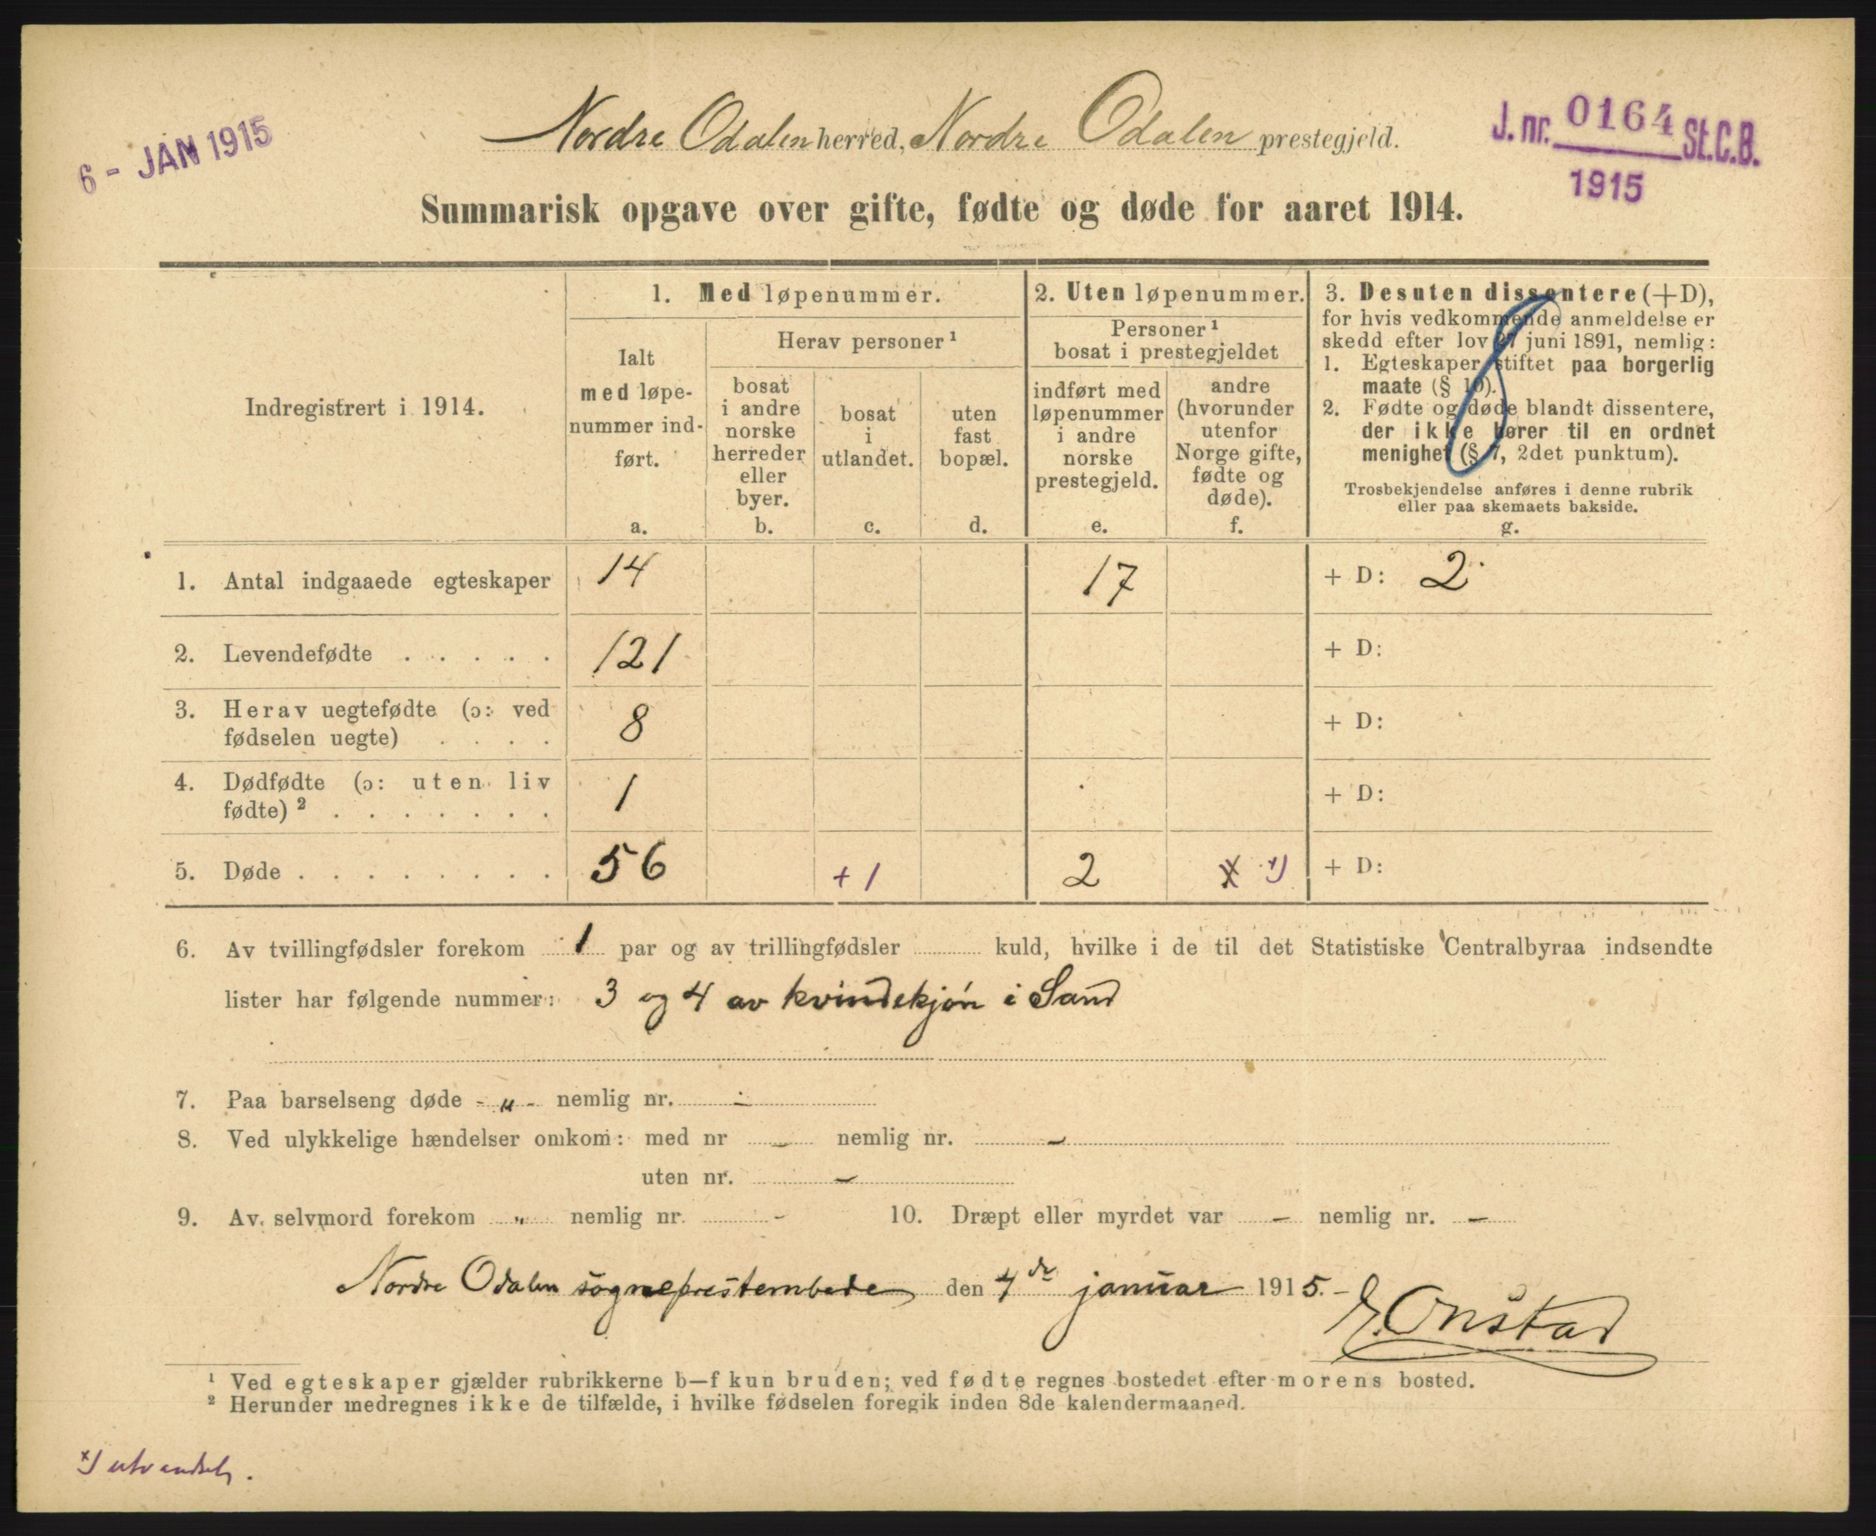 6 - JAN 1915
Nordre Odalen herred, Nordre Odalen prestegjeld.
J. nr. 0164 St. C. B.
1915
Summarisk opgave over gifte, fødte og døde for aaret 1914.
Indregistrert i 1914.
1. Med løpenummer.
Ialt
med løpe-
nummer ind-
ført.
a.
Herav personer ¹
bosat
i andre
norske
herreder
eller
byer.
b.
bosat
i
utlandet.
c.
uten
fast
bopæl.
d.
2. Uten løpenummer.
Personer ¹
bosat i prestegjeldet
indført med
løpenummer
i andre
norske
prestegjeld.
e.
andre
(hvorunder
utenfor
Norge gifte,
fødte og
døde).
f.
3. Desuten dissentere (+D),
for hvis vedkommende anmeldelse er
skedd efter lov 27 juni 1891, nemlig:
1. Egteskaper stiftet paa borgerlig
maate (§ 10).
2. Fødte og døde blandt dissentere,
der ikke hører til en ordnet
menighet (§ 7, 2det punktum).
Trosbekjendelse anføres i denne rubrik
eller paa skemaets bakside.
g.
1. Antal indgaaede egteskaper 14 17 + D: 2
2. Levendefødte . . . . . 121 + D:
3. Herav uegtefødte (ɔ: ved
fødselen uegte) . . . . 8 + D:
4. Dødfødte (ɔ: uten liv
fødte) ² . . . . . . . 1 + D:
5. Døde . . . . . . . . 56 + 1 2 x) + D:
6. Av tvillingfødsler forekom 1 par og av trillingfødsler kuld, hvilke i de til det Statistiske Centralbyraa indsendte
lister har følgende nummer: 3 og 4 av kvindekjøn i Sand
7. Paa barselseng døde - " - nemlig nr. -
8. Ved ulykkelige hændelser omkom: med nr - nemlig nr. -
uten nr. -
9. Av selvmord forekom " nemlig nr. - 10. Dræpt eller myrdet var - nemlig nr. -
Nordre Odalen sogneprestembede den 4de januar 1915. -
E. Onstad
¹ Ved egteskaper gjælder rubrikkerne b—f kun bruden; ved fødte regnes bostedet efter morens bosted.
² Herunder medregnes ikke de tilfælde, i hvilke fødselen foregik inden 8de kalendermaaned.
x) utvandret.